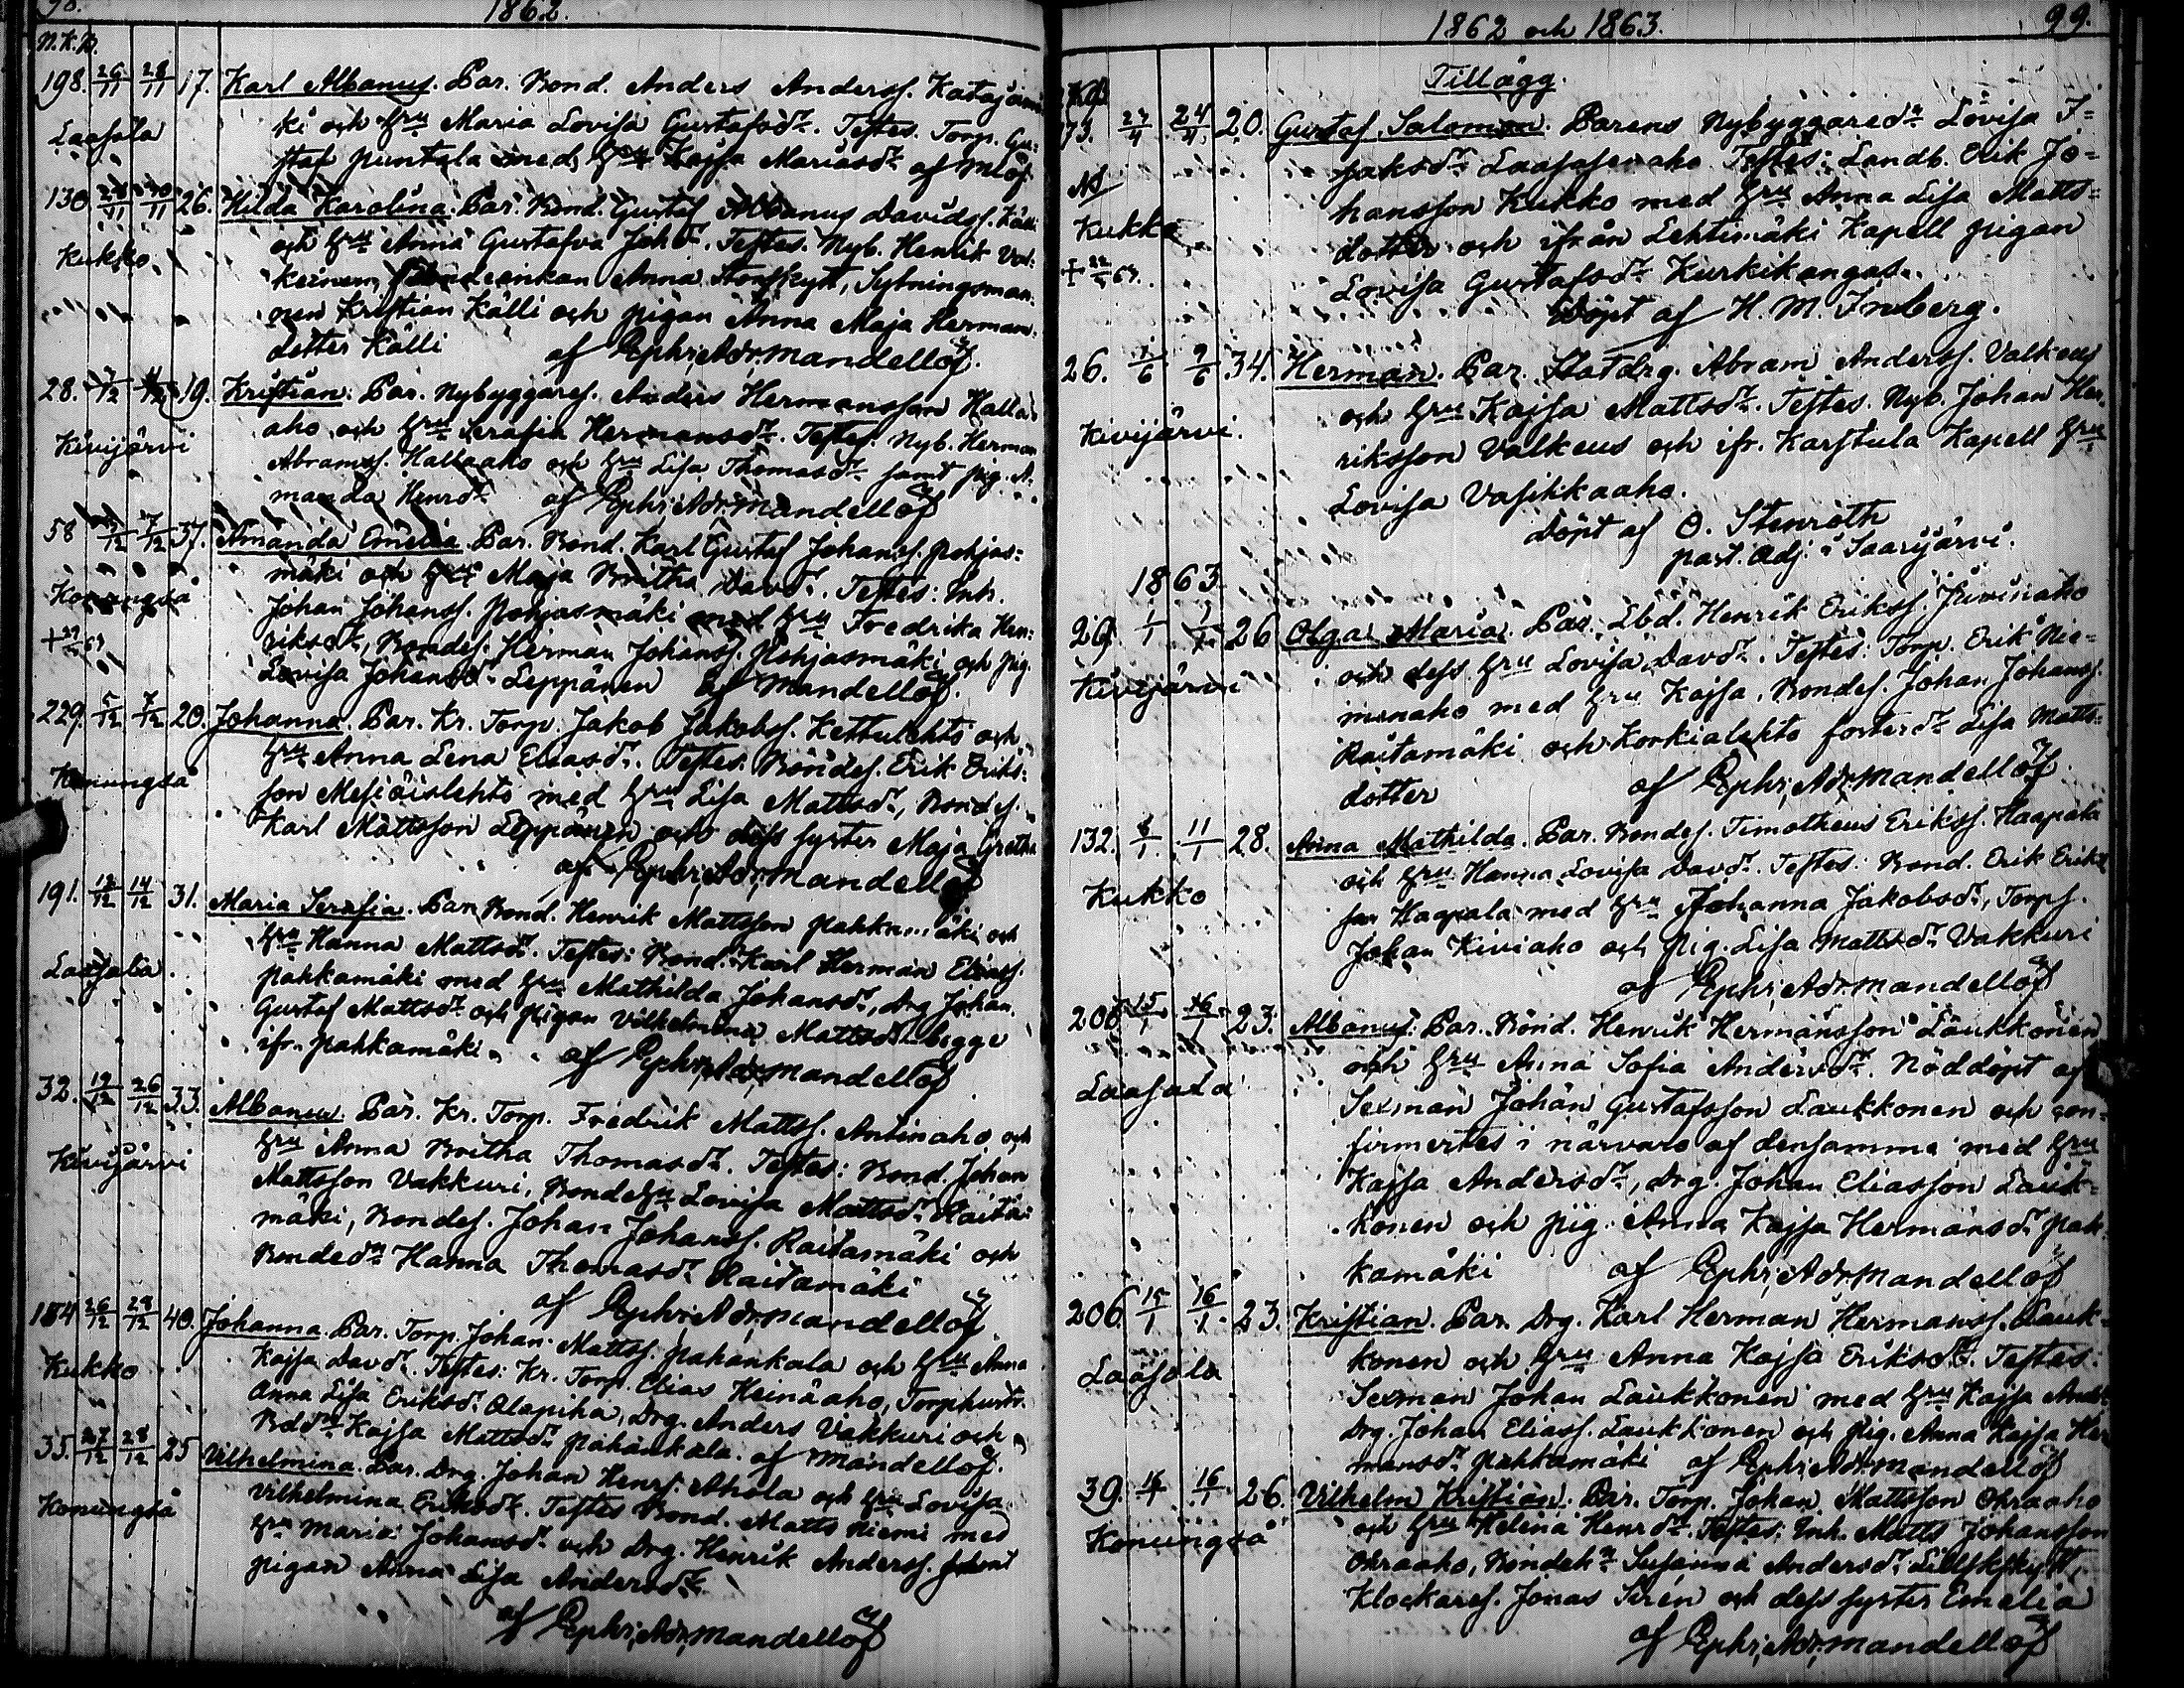 98.
1862.
N.K.B.
198. 26/11 28/11 17. Karl Albanus. Par. Bond. Anders Anderss. Katajam
ki och hru Maria Lovisa Gustafsdr. Testes. Torp. Gu-
Laasala
staf Puntala med hru Kajsa Mariasdr af Mlöf
130 /11 30/11 26. Hilda Karolina. Par. Bond. Gustaf Albanus Davidss. Källi
och hru Anna Gustafva Johdr. Testes. Nyb. Henrik
Kukko
Anna Storskytt, Sytningsman-
nen Kristian Källi och pigan Anna Maja Herman-
dotter Källi af Ephr; Adr; Mandellöf.
28. /12 /12 19. Kristian. Par. Nybyggares. Anders Hermansson Halla-
aho och hru Serafia Hermansdr. Testes. Nyb. Herman
Kivijärvi
Abramss. Hallaaho och hru Lisa Thomasdr samt pig. A-
manda Henrdr af Ephr; Adr; Mandellöf
58 /12 7/12 37. Amanda Emelia. Par. Bond. Karl Gustaf Johanss. Pohjas-
mäki och hru Maja Britha Davdr. Testes: Inh.
Konungså
Johan Johanss. Pohjasmäki med hru Fredrika Hen-
riksdr, Bondes. Herman Johanss. Pohjasmäki och pig.
Lovisa Johansdr Leppänen af Mandellöf.
229. 5/12 7/12 20. Johanna. Par. Kr. Torp. Jakob Jakobss. Kettulehto och
hru Anna Lena Eliasdr. Testes. Bondes. Erik Eriks-
Konungså
son Mesiäislehto med hru Lisa Mattsdr, Bondes.
Karl Mattsson Leppänen och dess syster Maja Gretha
af Ephr; Adr; Mandellöf
191. 12/12 14/12 31. Maria Serafia. Par. Bond. Henrik Mattsson Pahkamäki och
hru Hanna Mattsdr. Testes: Bond. Karl Herman Eliass.
Laasala.
Pahkamäki med hru Mathilda Johansdr, Drg Johan
Gustaf Mattsdr och pigan Vilhelmina Mattsdr begge
ifr. Pahkamäki. af Ephr; Adr; Mandellöf
32. 19/12 26/12 33. Albanus. Par. Kr. Torp. Fredrik Mattss. Antinaho och
hru Anna Britha Thomasdr. Testes: Bond. Johan
Kivijärvi
Mattsson Vakkuri, Bondehru Lovisa Mattsdr Raita-
mäki, Bondes. Johan Johanss. Raitamäki och
Bondedr Hanna Thomasdr Raitamäki
af Ephr; Adr; Mandellöf
184 26/12 28/12 40. Johanna. Par. Torp. Johan Mattss. Pahankala och hru Anna
Kajsa Davdr. Testes: Kr. Torp. Elias Heinäaho, Torphustr.
Kukko
Anna Lisa Eriksdr Alapiha, Drg. Anders Vakkuri och
Bddr Kajsa Mattsdr Pahankala. af Mandellöf.
35. 27/12 28/12 25 Vilhelmina. Par. Drg. Johan Henrs. Ahola och hru Lovisa
Vilhelmina Eriksdr. Testes Bond. Matts Niemi med
Konungså
hru Maria Johansdr och Drg. Henrik Anderss. samt
pigan Anna Lisa Andersdr.
af Ephr; Adr; Mandellöf
1862 och 1863. 99.
Tillägg.
173. 27/4 24/4. 20. Gustaf Salomon. Parens Nybyggaredr Lovisa I-
saksdr Laasasenaho Testes: Landb. Erik Jo-
hansson Kukko med hru Anna Lisa Matts-
Kukko
dotter och ifrån Lehtimäki Kapell pigan
Lovisa Gustafsdr Kurkikangas.
Döpt af H. M. Inberg.
26. /6 9/6 34. Herman. Par. Drg. Abram Anderss. Valkeus
och hru Kajsa Mattsdr. Testes. Nyb. Johan Hen-
Kivijärvi.
riksson Valkeus och ifr. Karstula Kapell hru
Lovisa Vasikkaaho.
Döpt af O. Stenroth
past. adj. i Saarijärvi.
1863.
29. 1/1 /1 26 Olga Maria. Par. Lbd. Henrik Erikss. Juurinaho
och dess hru Lovisa Davdr. Testes: Torp. Erik Nie-
Kivijärvi
menaho med hru Kajsa, Bondes. Johan Johanss.
Raitamäki och Korkialehto fosterdr Lisa Matts-
dotter af Ephr; Adr; Mandellöf.
132. 6/1 11/1 28. Anna Mathilda. Par. Bondes. Timotheus Erikss. Haapala
och hru Hanna Lovisa Davdr. Testes: Bond. Erik Eriks
Kukko
son Haapala med hru Johanna Jakobsdr, Torps.
Johan Kiviaho och pig. Lisa Mattsdr Vakkuri
af Ephr; Adr; Mandellöf
206 15/1 16/1 23. Albanus. Par. Bond. Henrik Hermansson Laukkonen
och hru Anna Sofia Andersdr. Nöddöpt af
Laasala
Sexman Johan Gustafsson Laukkonen och con-
firmertes i närvaro af densamma med hru
Kajsa Andersdr, Drg. Johan Eliasson Lauk-
konen och pig. Anna Kajsa Hermansdr Pah-
kamäki af Ephr; Adr; Mandellöf
206 15/1 16/1. 23. Kristian. Par. Drg. Karl Herman Hermanss. Lauk-
konen och hru Anna Kajsa Eriksdr. Testes:
Laasala
Sexman Johan Laukkonen med hru Kajsa Anddr
Drg. Johan Eliass. Laukkonen och pig. Anna Kajsa Her
mansdr Pahkamäki af Ephr; Adr; Mandellöf
39. 14/1 16/1 26. Vilhelm Kristian. Par. Torp. Johan Mattsson Ohraaho
och hru Helena Henrdr. Testes: Inh. Matts Johansson
Konungså
Ohraaho, Bondehu Susanna Andersdr Lillskytt,
Klockares. Jonas Sirén och dess syster Emelia
af Ephr; Adr; Mandellöf